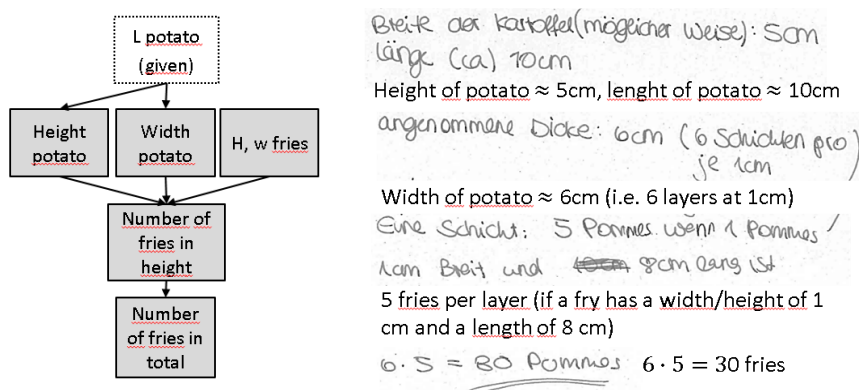 L potato
(given)
Height
potato
Width
potato
H, w fries
Number of
fries in
height
Number
of fries in
total
Breite der Kartoffel (möglicher Weise): 5cm
Länge (ca) 10cm
Height of potato ≈ 5cm, lenght of potato ≈ 10cm
angenommene Dicke: 6cm (6 Schichten pro)
je 1cm
Width of potato ≈ 6cm (i.e. 6 layers at 1cm)
Eine Schicht: 5 Pommes wenn 1 Pommes
1cm Breit und 8cm lang ist
5 fries per layer (if a fry has a width/height of 1
cm and a length of 8 cm)
6·5 = 30 Pommes 6 · 5 = 30 fries